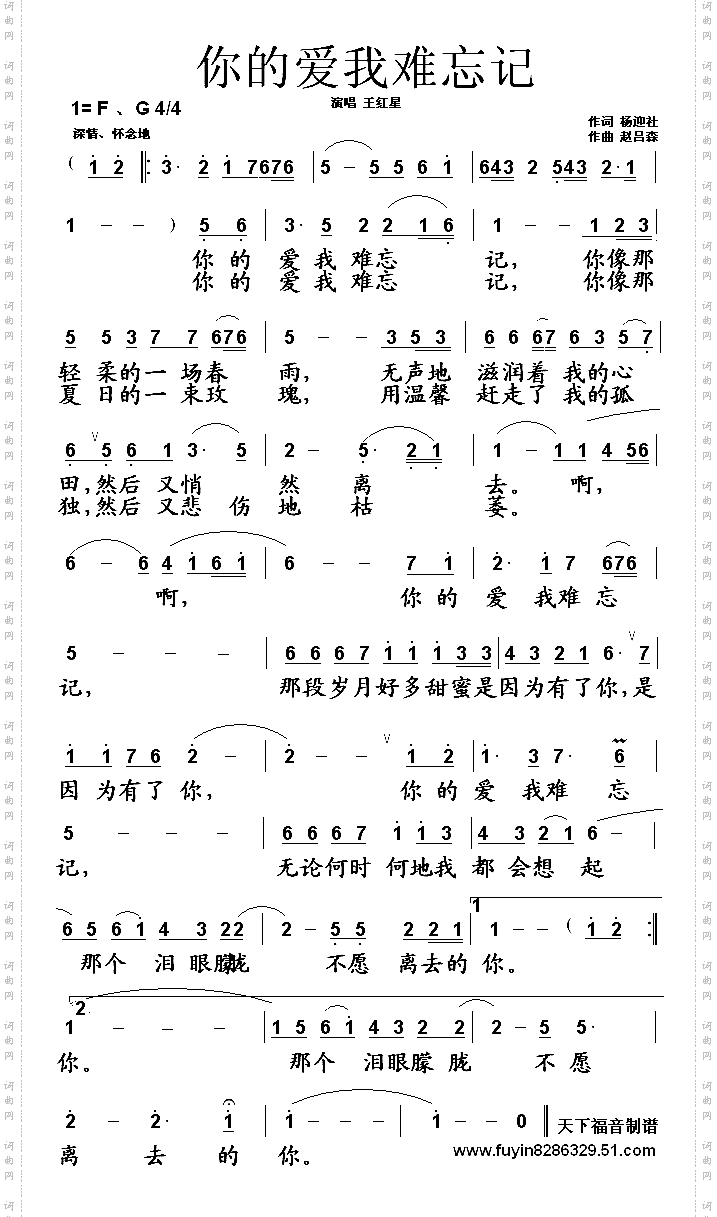 你的爱我难忘记
演唱 王红星
1= F 、G 4/4
深情、怀念地
作词 杨迎社
作曲 赵吕森
( 1 2 ‖: 3· 2 1 7676 | 5 - 5 5 6 1 | 643 2 543 2·1 |
1 - - ) 5 6 | 3· 5 2 2 1 6 | 1 - - 1 2 3 |
你 的 爱 我 难忘 记, 你像那
你 的 爱 我 难忘 记, 你像那
5 5 3 7 7 676 | 5 - - 3 5 3 | 6 6 67 6 3 5 7 |
轻 柔的一 场春 雨, 无声地 滋润着 我的心
夏 日的一 束玫 瑰, 用温馨 赶走了 我的孤
6 ∨ 5 6 1 3· 5 | 2 - 5· 2 1 | 1 - 1 1 4 56 |
田,然后 又悄 然 离 去。 啊,
独,然后 又悲 伤 地 枯 萎。
6 - 6 4 1 6 1 | 6 - - 7 1 | 2· 1 7 676 |
啊, 你 的 爱 我难 忘
5 - - - | 6 6 6 7 1 1 1 3 3 | 4 3 2 1 6· ∨ 7 |
记, 那段岁月好多甜蜜是因为有了你,是
1 1 7 6 2 - | 2 - - ∨ 1 2 | 1· 3 7· 6 |
因 为有了 你, 你 的 爱 我难 忘
5 - - - | 6 6 6 7 1 1 3 | 4 3 2 1 6 - |
记, 无论何时 何地我 都 会想 起
6 5 6 1 4 3 22 | 2 - 5 5 2 2 1 | 1 1 - - ( 1 2 :‖
那个 泪 眼朦胧 不愿 离去的 你。
2
1 - - - | 1 5 6 1 4 3 2 2 | 2 - 5 5· |
你。 那个 泪眼朦 胧 不 愿
2 - 2· 1 | 1 - - - | 1 - - 0 ‖ 天下福音制谱
离 去 的 你。
www.fuyin8286329.51.com
词曲网